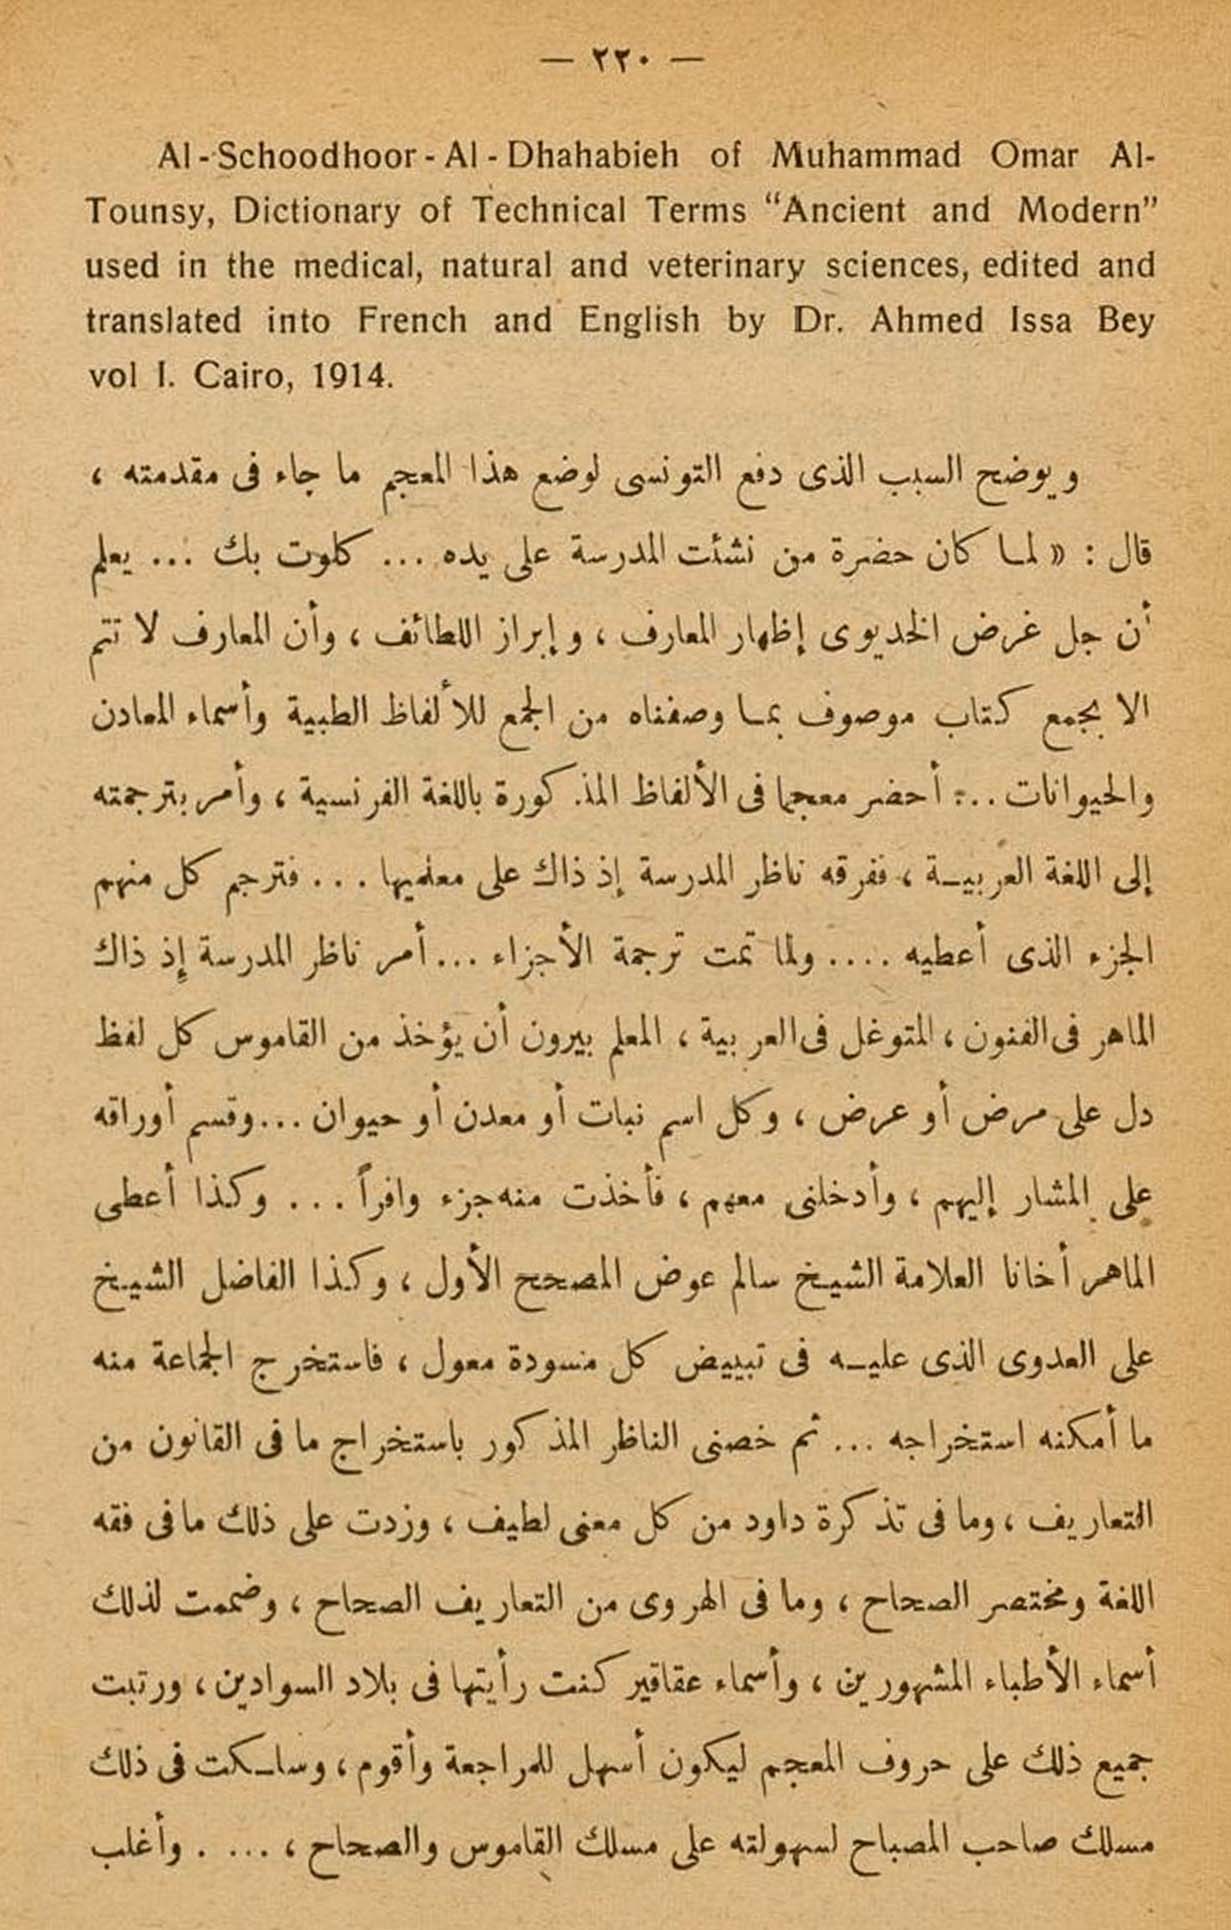 — ٢٢٠ —
Al-Schoodhoor-Al-Dhahabieh of Muhammad Omar Al-
Tounsy, Dictionary of Technical Terms “Ancient and Modern”
used in the medical, natural and veterinary sciences, edited and
translated into French and English by Dr. Ahmed Issa Bey
vol I. Cairo, 1914.
ويوضح السبب الذى دفع التونسى لوضع هذا المعجم ما جاء فى مقدمته ،
قال : « لما كان حضرة من نشئت المدرسة على يده ... كلوت بك ... يعلم
أن جل غرض الخديوى إظهار المعارف ، وإبراز اللطائف ، وأن المعارف لا تتم
الا بجمع كتاب موصوف بما وصفناه من الجمع للألفاظ الطبية وأسماء المعادن
والحيوانات ... أحضر معجما فى الألفاظ المذكورة باللغة الفرنسية ، وأمر بترجمته
إلى اللغة العربية ، ففرقه ناظر المدرسة إذ ذاك على معلميها ... فترجم كل منهم
الجزء الذى أعطيه .... ولما تمت ترجمة الأجزاء ... أمر ناظر المدرسة إذ ذاك
الماهر فى الفنون ، المتوغل فى العربية ، المعلم بيرون أن يؤخذ من القاموس كل لفظ
دل على مرض أو عرض ، وكل اسم نبات أو معدن أو حيوان ... وقسم أوراقه
على المشار إليهم ، وأدخلنى معهم ، فأخذت منه جزء وافراً ... وكذا أعطى
الماهر أخانا العلامة الشيخ سالم عوض المصحح الأول ، وكذا الفاضل الشيخ
على العدوى الذى عليه فى تبييض كل مسودة معول ، فاستخرج الجماعة منه
ما أمكنه استخراجه ... ثم خصنى الناظر المذكور باستخراج ما فى القانون من
التعاريف ، وما فى تذكرة داود من كل معنى لطيف ، وزدت على ذلك ما فى فقه
اللغة ومختصر الصحاح ، وما فى الهروى من التعاريف الصحاح ، وضممت لذلك
أسماء الأطباء المشهورين ، وأسماء عقاقير كنت رأيتها فى بلاد السوادين ، ورتبت
جميع ذلك على حروف المعجم ليكون أسهل للمراجعة وأقوم ، وسلكت فى ذلك
مسلك صاحب المصباح لسهولته على مسلك القاموس والصحاح ، .... وأغلب